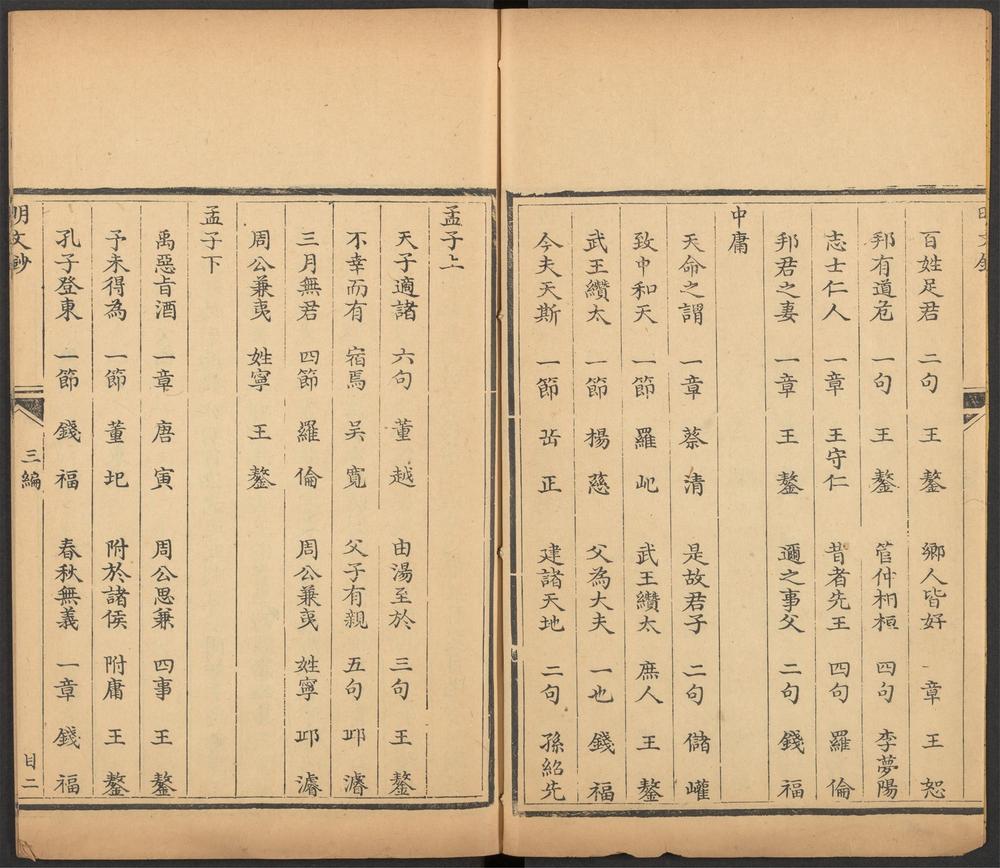 百姓足君 二句 王鏊 鄉人皆好 一章 王恕
邦有道危 一句 王鏊 管仲相桓 四句 李夢陽
志士仁人 一章 王守仁 昔者先王 四句 羅倫
邦君之妻 一章 王鏊 邇之事父 二句 錢福
中庸
天命之謂 一章 蔡清 是故君子 二句 儲巏
致中和天 一節 羅玘 武王纘太 庶人 王鏊
武王纘太 一節 楊慈 父為大夫 一也 錢福
今夫天斯 一節 岳正 建諸天地 二句 孫紹先
孟子上
天子適諸 六句 董越 由湯至於 三句 王鏊
不幸而有 宿焉 吴寬 父子有親 五句 邱濬
三月無君 四節 羅倫 周公兼夷 姓寧 邱濬
周公兼夷 姓寧 王鏊
孟子下
禹惡旨酒 一章 唐寅 周公思兼 四事 王鏊
予未得為 一節 董圯 附於諸侯 附庸 王鏊
孔子登東 一節 錢福 春秋無義 一章 錢福
明文鈔 三編 目二